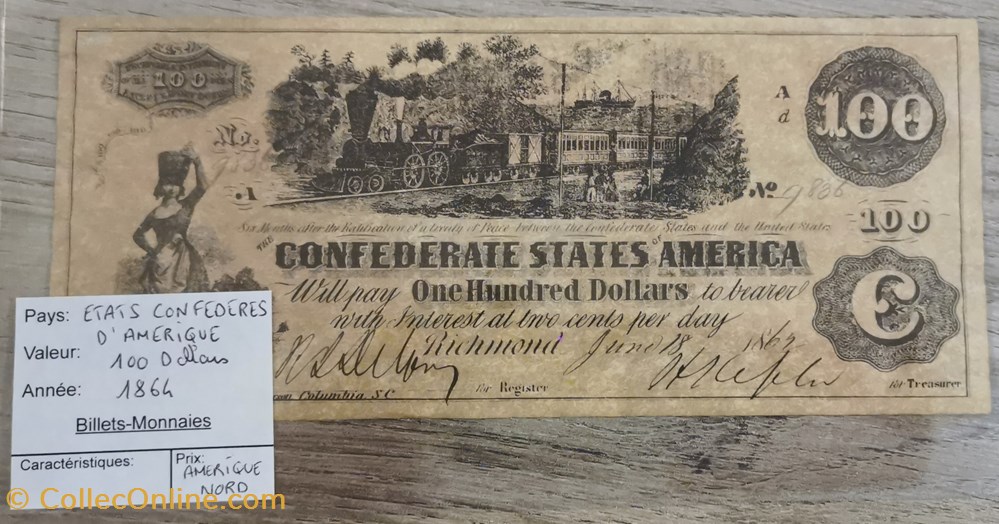 100
No.
A
d
100
.1
No 9836
100
Six Months after the Ratification of a treaty of Peace between the Confederate States and the United States
THE CONFEDERATE STATES OF AMERICA
Will pay One Hundred Dollars to bearer
with Interest at two cents per day
Richmond June 18 1862
for Register
for Treasurer
Columbia, S.C
C
Pays: ETATS CONFEDERES
D'AMERIQUE
Valeur: 100 Dollars
Année: 1864
Billets-Monnaies
Caractéristiques:
Prix:
AMERIQUE
NORD
© CollecOnline.com